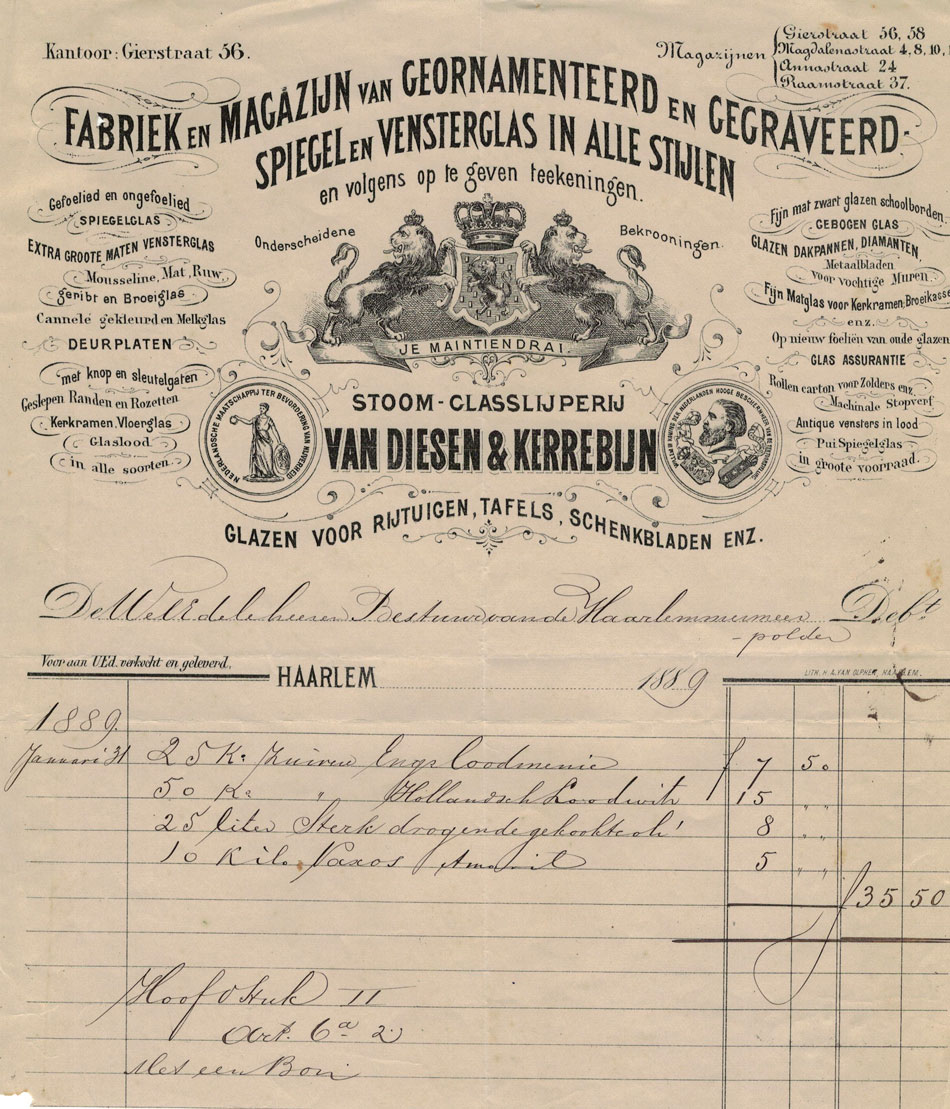 Kantoor: Gierstraat 56.
Magazijnen
Gierstraat 56, 58
Magdalenastraat 4, 8, 10,
Annastraat 24
Raamstraat 37.
FABRIEK EN MAGAZIJN VAN GEORNAMENTEERD EN GEGRAVEERD-
SPIEGEL EN VENSTERGLAS IN ALLE STIJLEN
en volgens op te geven teekeningen.
Gefoelied en ongefoelied
SPIEGELGLAS
EXTRA GROOTE MATEN VENSTERGLAS
Mousseline, Mat, Ruw,
geribt en Broeiglas
Cannelé gekleurd en Melkglas
DEURPLATEN
met knop en sleutelgaten
Geslepen Randen en Rozetten
Kerkramen, Vloerglas
Glaslood
in alle soorten.
Onderscheidene
Bekrooningen.
JE MAINTIENDRAI.
Fijn mat zwart glazen schoolborden,
GEBOGEN GLAS
GLAZEN DAKPANNEN, DIAMANTEN,
Metaalbladen
voor vochtige Muren.
Fijn Matglas voor Kerkramen, Broeikasse
enz.
Op nieuw foeliën van oude glazen
GLAS ASSURANTIE
Rollen carton voor Zolders enz
Machinale Stopverf
Antique vensters in lood
Pui Spiegelglas
in groote voorraad.
NEDERLANDSCHE MAATSCHAPPIJ TER BEVORDERING VAN NIJVERHEID
STOOM-GLASSLIJPERIJ
VAN DIESEN & KERREBIJN
WILLEM III KONING DER NEDERLANDEN HOOGE BESCHERMHEER VAN DE
GLAZEN VOOR RIJTUIGEN, TAFELS, SCHENKBLADEN ENZ.
De WelEdele heeren Bestuur van de Haarlemmermeer Debt
-polder
Voor aan UEd. verkocht en geleverd.
HAARLEM 1889
LITH. H. A. VAN OLPHEN, HAARLEM.
1889.
Januari 31 25 Ko Zuiver Engs Loodmenie f 7 50
50 Ko " Hollandsch Loodwit 15 " "
25 liter Sterk drogende gekookte oli 8 " "
10 Kilo Naxos Amaril 5 " "
f 35 50
Hoofdstuk II
Art. 6a 2
Met een Bon